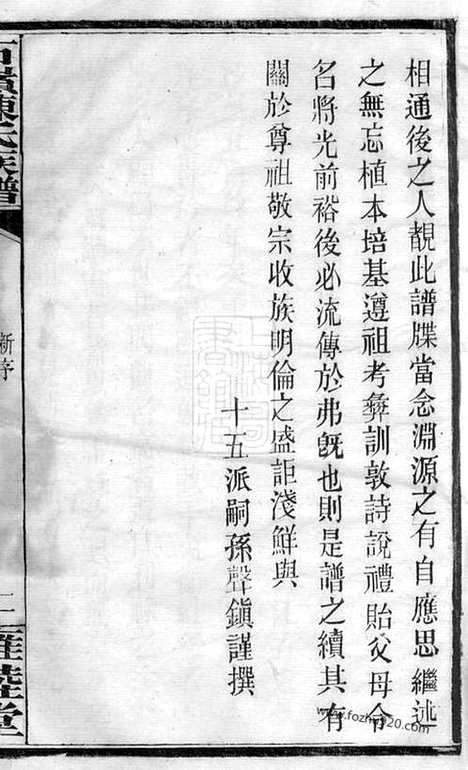 相通後之人覩此譜牒當念淵源之有自應思繼述
之無忘植本培基遵祖考彝訓敦詩說禮貽父母令
名將光前裕後必流傳於弗旣也則是譜之續其有
關於尊祖敬宗收族明倫之盛詎淺鮮與
十五派嗣孫聲鎮謹撰
陳氏族譜
新序
二
睦堂
www.fozhu920.com